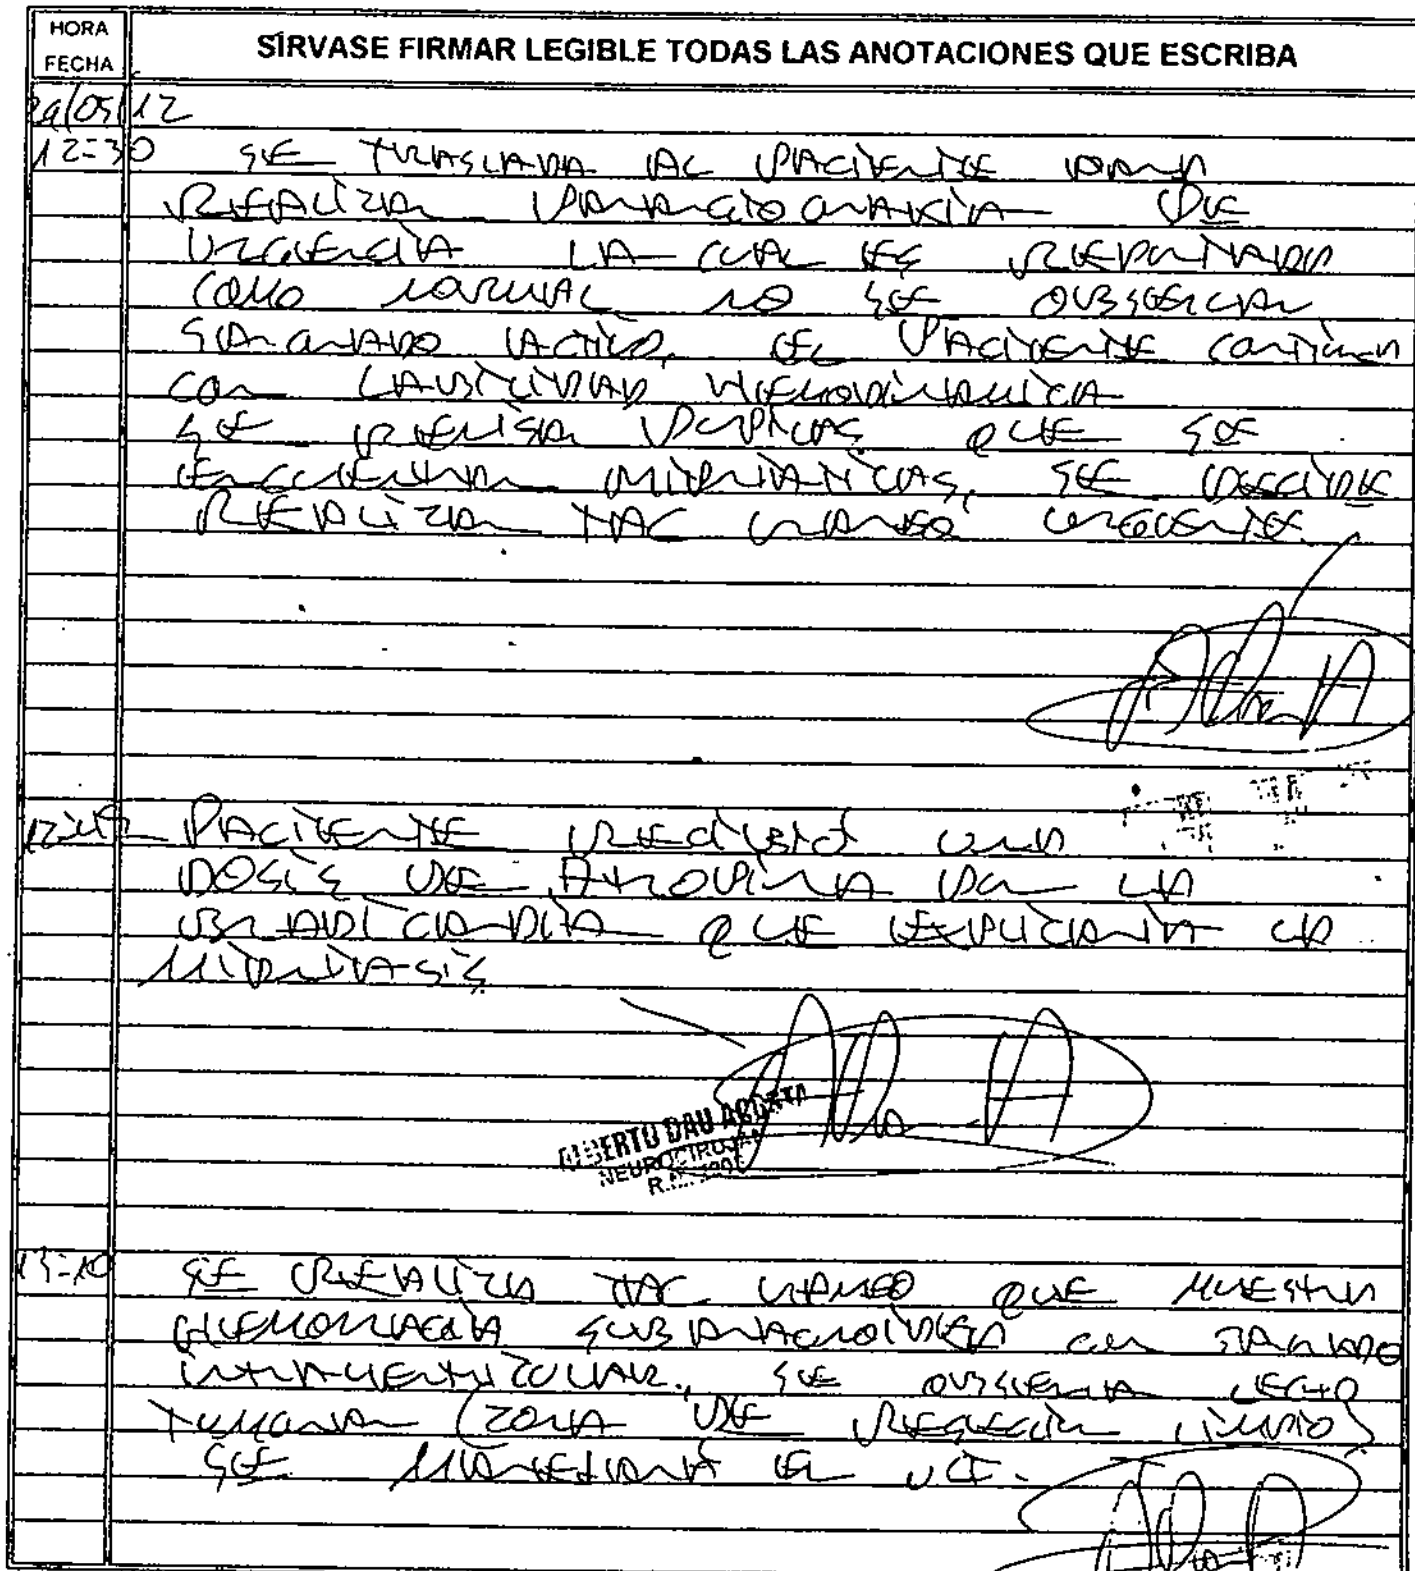 HORA
FECHA
SÍRVASE FIRMAR LEGIBLE TODAS LAS ANOTACIONES QUE ESCRIBA
29/05/12
12:30 SE TRASLADA AL PACIENTE PARA
REALIZAR PANANGIOGRAFIA DE
URGENCIA LA CUAL ES REPORTADA
COMO NORMAL NO SE OBSERVAN
SANGRADO ACTIVO, EL PACIENTE CONTINUA
CON LABILIDAD HEMODINAMICA
SE REVISA PUPILAS QUE SE
ENCUENTRAN MIDRIATICAS, SE DECIDE
REALIZAR TAC CRANEO URGENTE.
PACIENTE RECIBIÓ UNA
DOSIS DE ATROPINA POR LA
BRADICARDIA QUE EXPLICARIA LA
MIDRIASIS
ALBERTO DAU ACOSTA
NEUROCIRUJANO
13:10 SE REALIZA TAC CRANEO QUE MUESTRA
HEMORRAGIA SUBARACNOIDEA CON SANGRADO
INTRAVENTRICULAR., SE OBSERVA LECHO
TUMORAL (ZONA DE RESECCIÓN LIMPIO)
SE MANEJARÁ EN UCI.